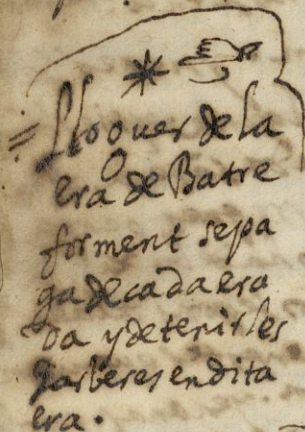 Lloouer de la
era de Batre
forment se pa
ga de cada era
da y detenir les
garberes en dita
era.